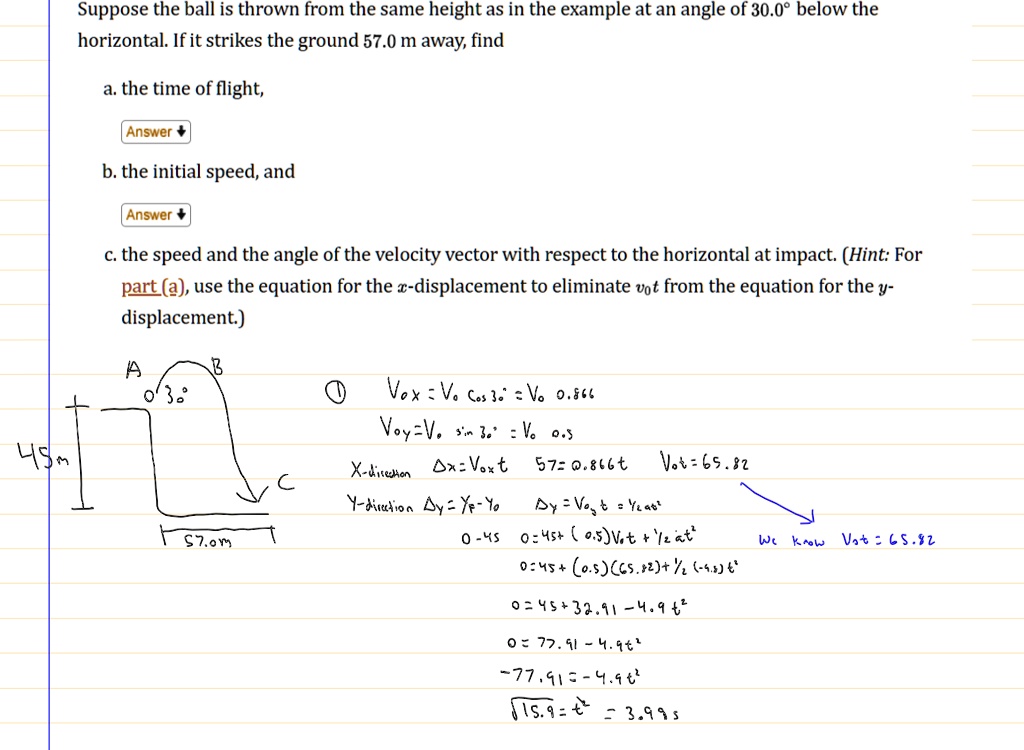 Suppose the ball is thrown from the same height as in the example at an angle of 30.0° below the
horizontal. If it strikes the ground 57.0 m away, find
a. the time of flight,
Answer ⬇
b. the initial speed, and
Answer ⬇
c. the speed and the angle of the velocity vector with respect to the horizontal at impact. (Hint: For
part (a), use the equation for the x-displacement to eliminate v₀t from the equation for the y-
displacement.)
A B
30°
45m
C
57.0m
① Vox = Vo Cos 30° = Vo 0.866
Voy = Vo sin 30° = Vo 0.5
X-direction Δx = Voxt 57 = 0.866t Vot = 65.82
Y-direction Δy = YF - Yo Δy = Voyt = ½at²
0-45 0=45+ (0.5)Vot + ½at² We know Vot = 65.82
0=45+ (0.5)(65.82)+½(-9.8)t²
0=45+32.91-4.9t²
0= 77.91 - 4.9t²
-77.91 = -4.9t²
√15.9 = t² = 3.99s